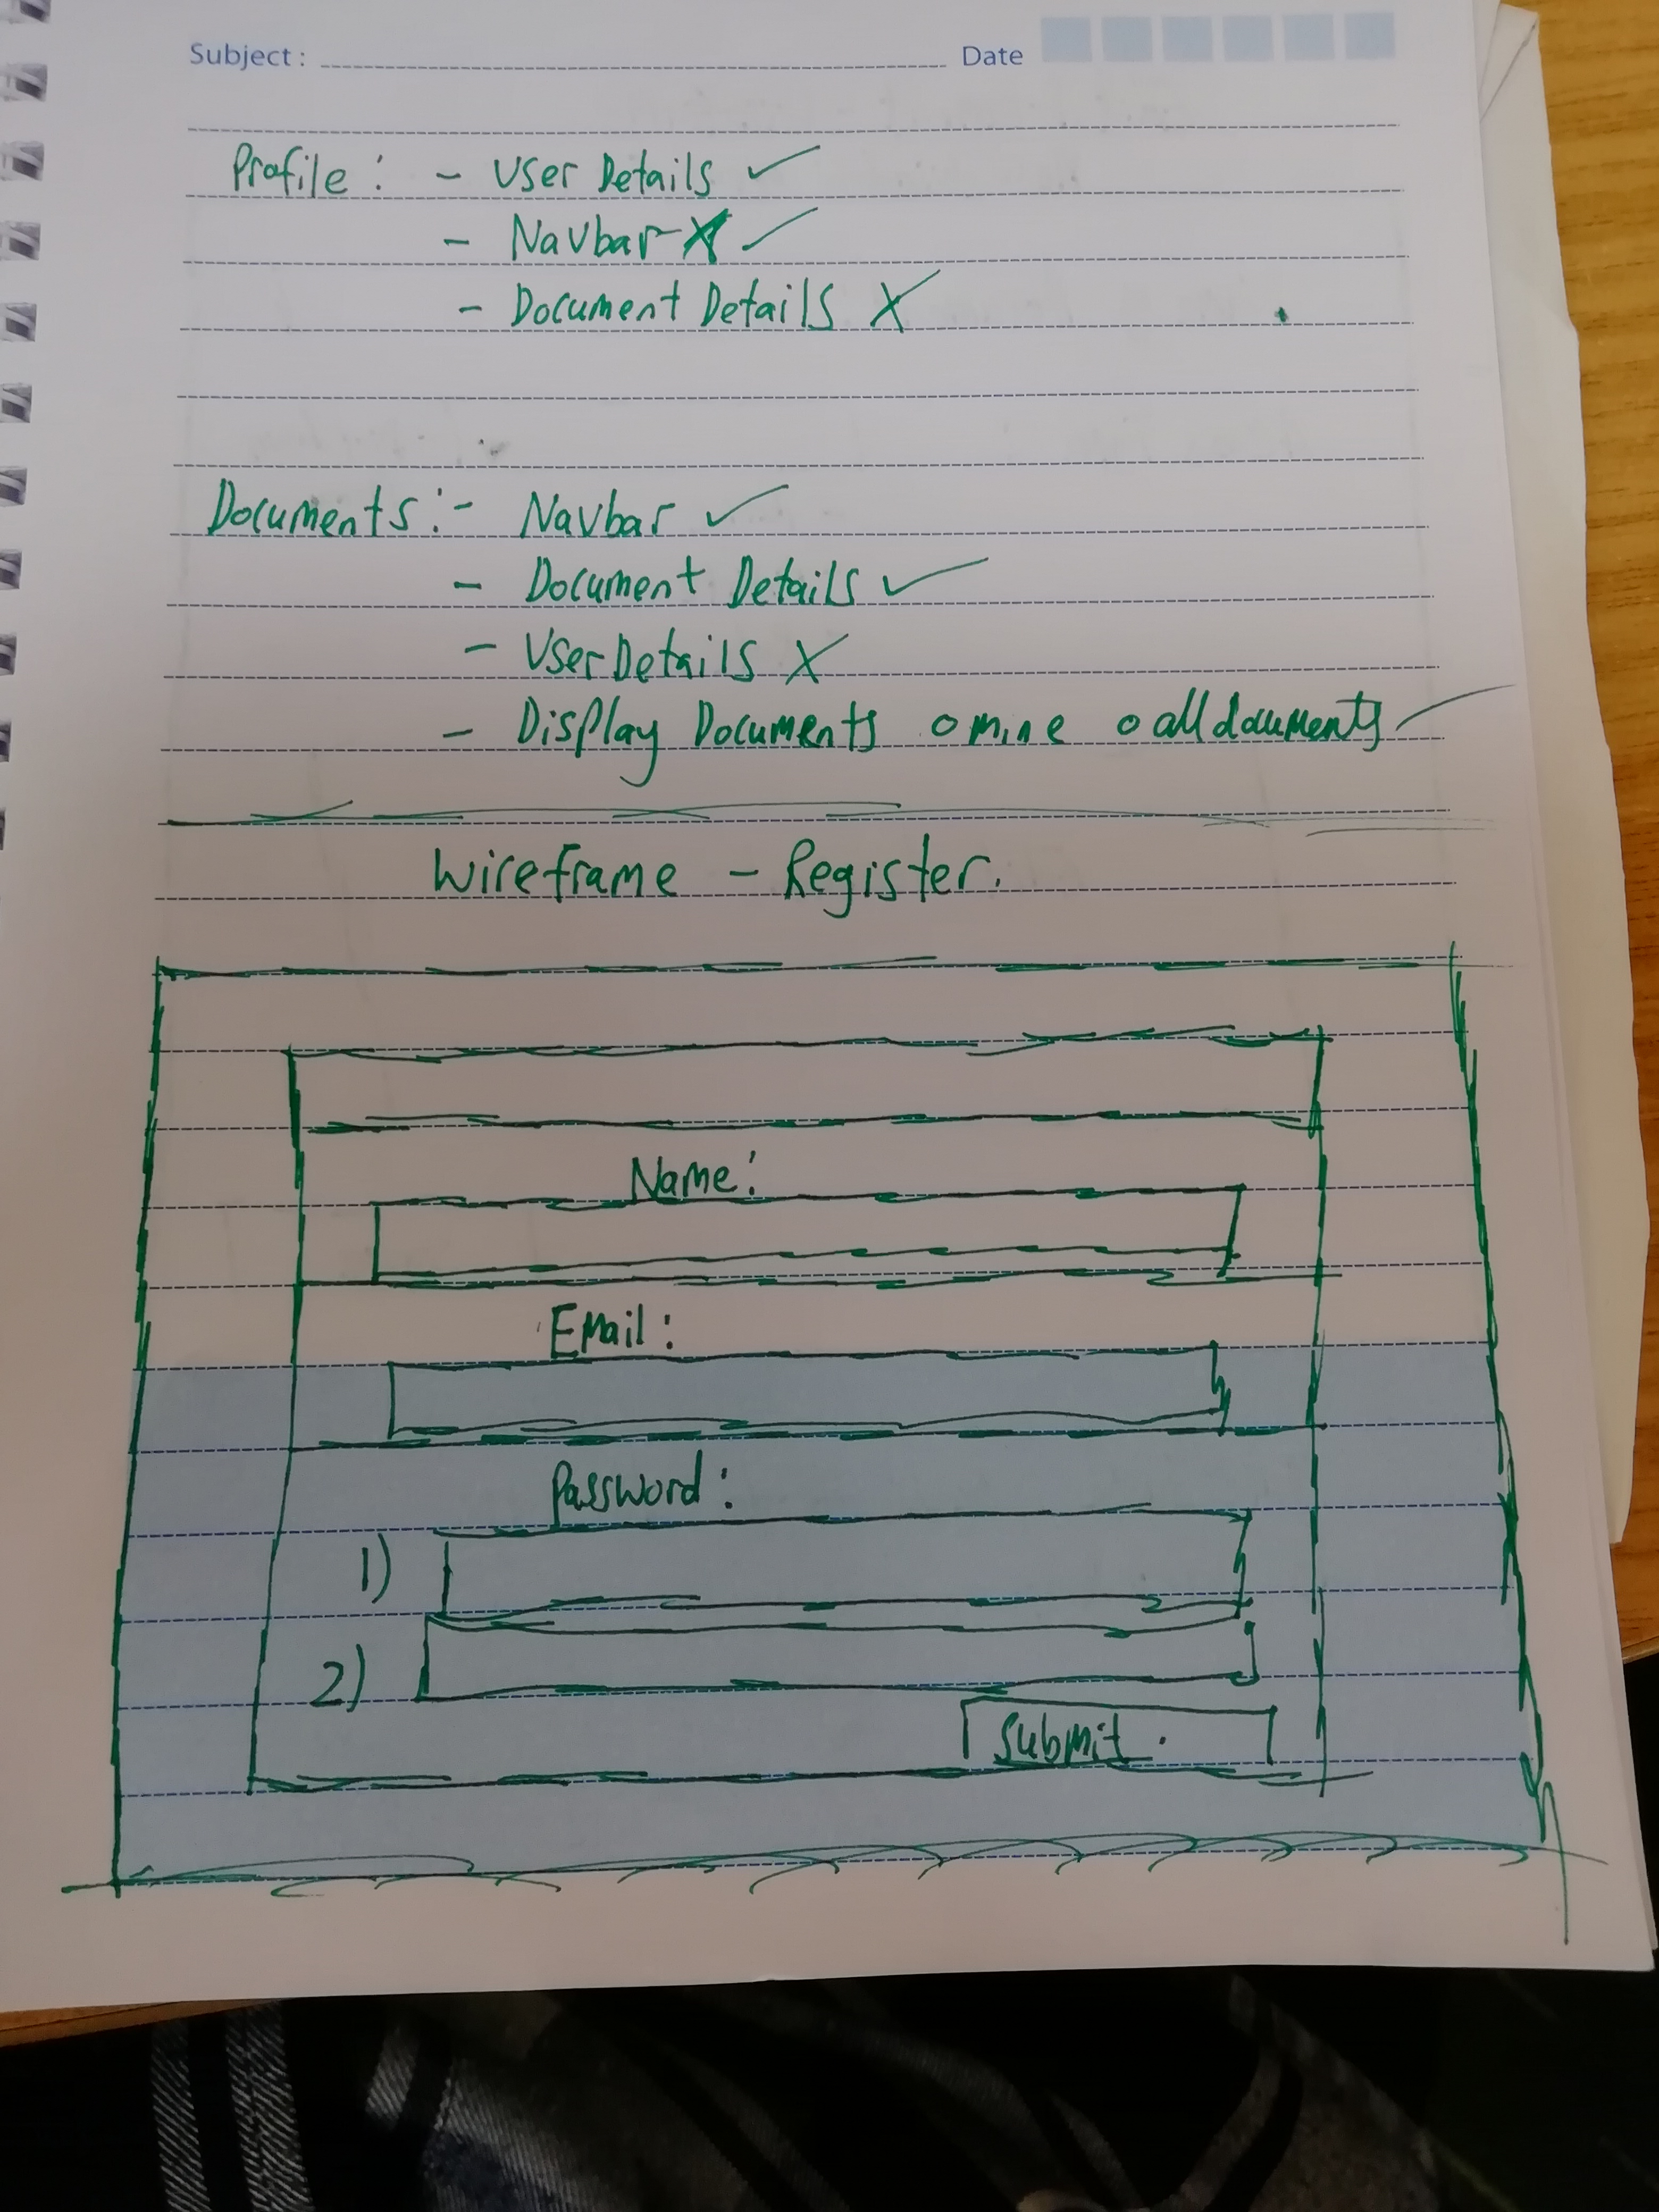 Subject : Date
Profile : - User Details ✓
- Navbar X ✓
- Document Details X
Documents :- Navbar ✓
- Document Details ✓
- User Details X
- Display Documents o mine o all documents ✓
Wireframe - Register.
Name:
Email:
Password:
1)
2)
Submit.